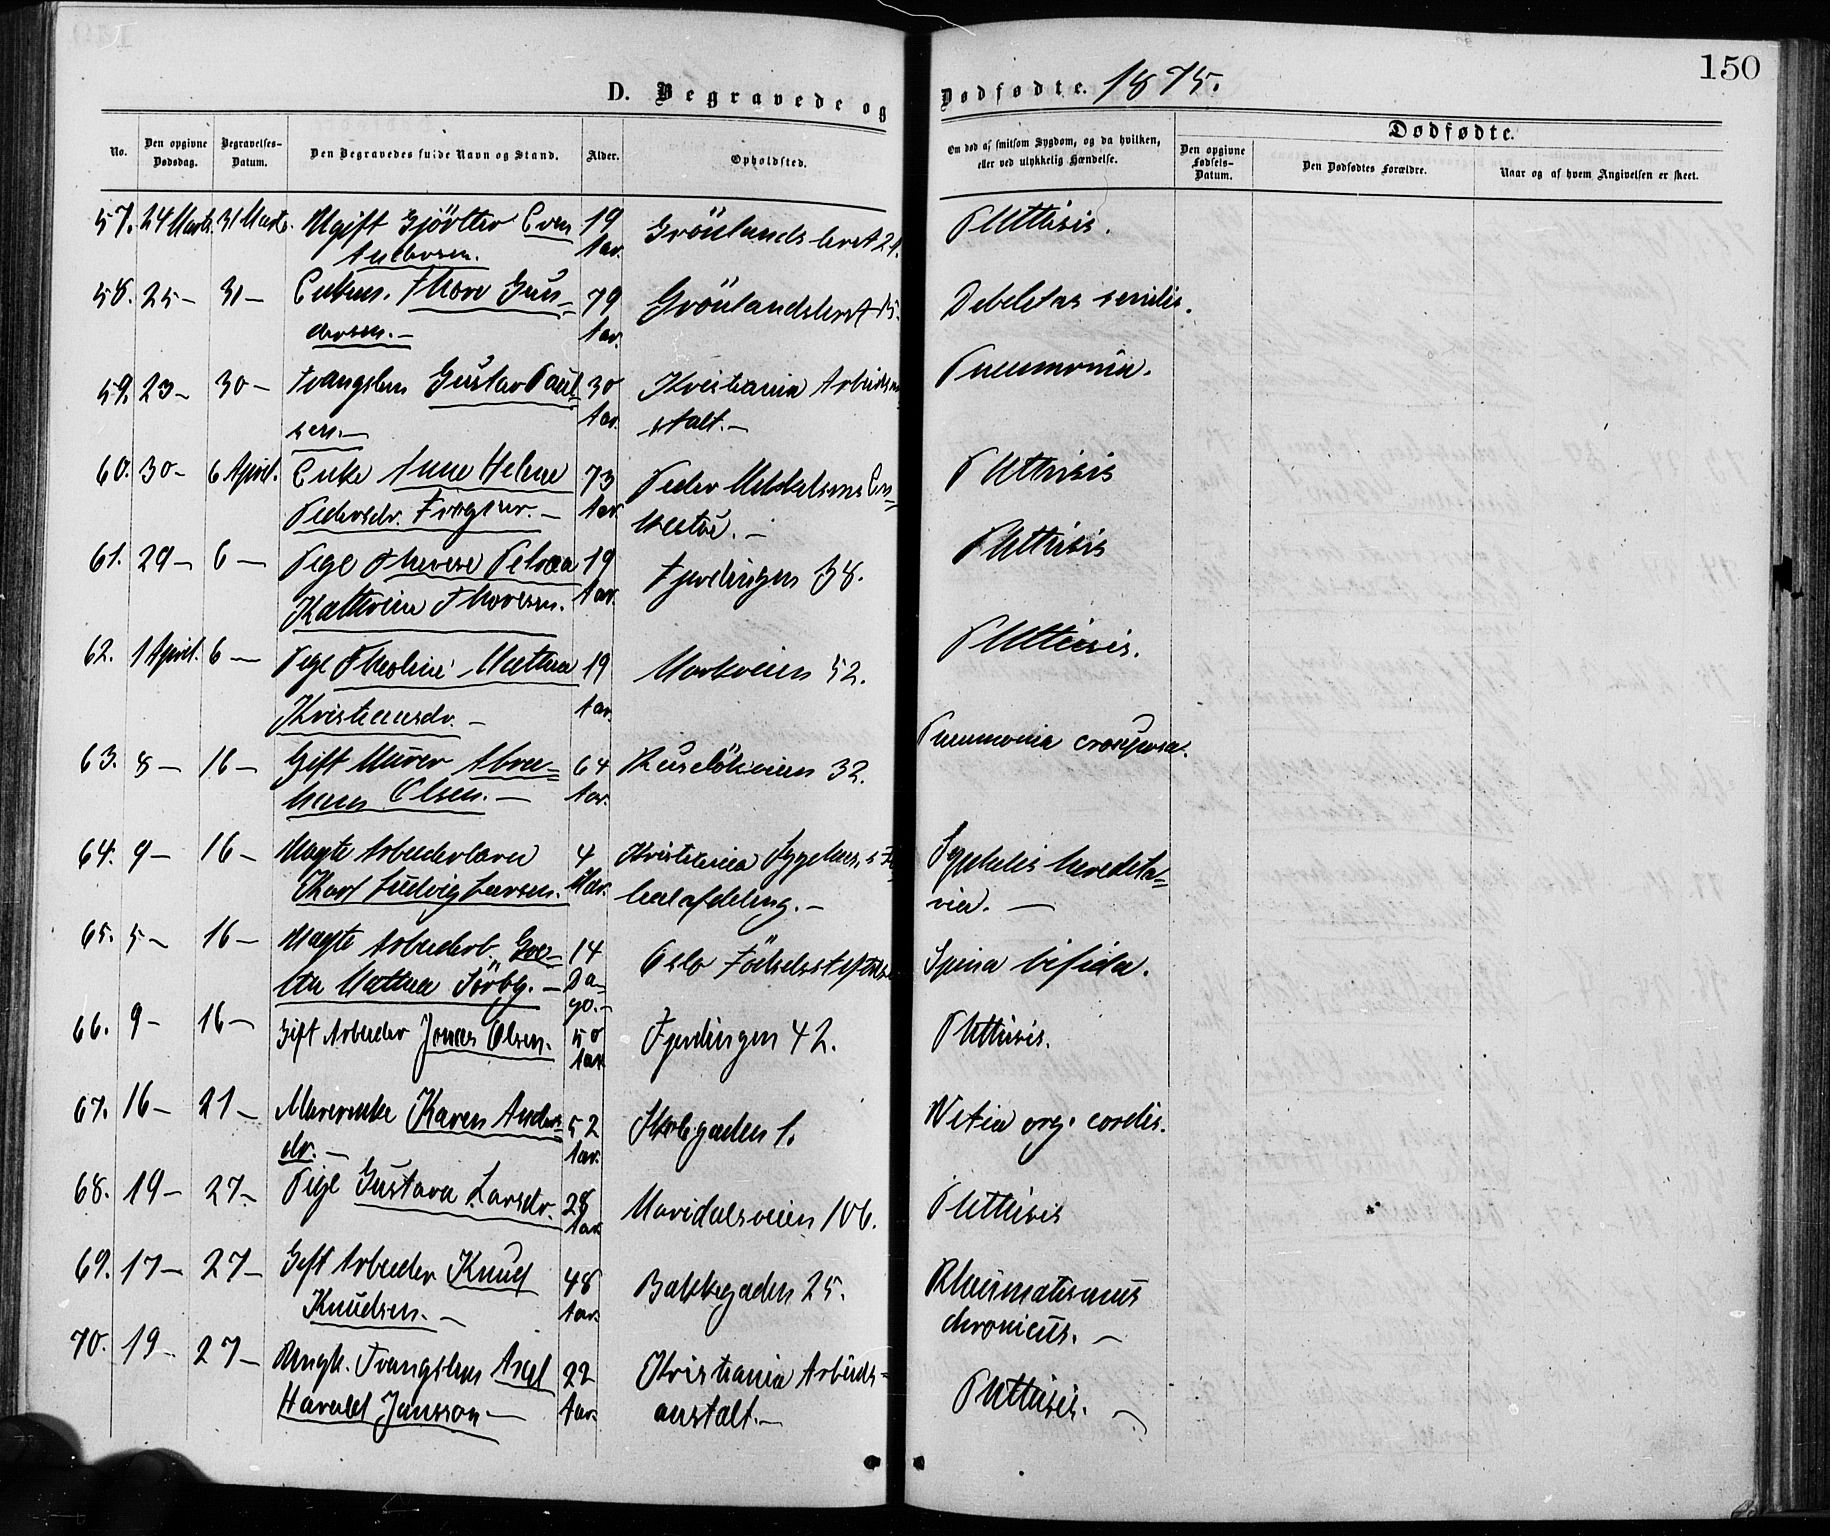 150
D. Begravede og Dødfødte. 1875.
No.
Den opgivne Dødsdag.
Begravelses-Datum.
Den Begravedes fulde Navn og Stand.
Alder.
Opholdssted.
Om død af smitsom Sygdom, og da hvilken, eller ved ulykkelig Hændelse.
Dødfødte.
Den opgivne Fødsels-Datum.
Den Dødfødtes Forældre.
Naar og af hvem Angivelsen er skeet.
57. 24 Marts. 31 Marts. Ugift Gjörtler Even 19 Grönlandsleret 21. Phthisis.
Andersen. Aar.
58. 25 – 31 – Enkem. Thore Gun= 79 Grönlandsleret 15. Debelitas senilis.
dersen. – Aar.
59. 23 – 30 – Tvangslem Gustav Paul= 30 Kristiania Arbeidsan= Pneumonia.
sen. – Aar. stalt. –
60. 30 – 6 April. Enke Anne Helene 73 Peder Phthisis
Pedersdr. Aar. –
61. 29 – 6 – Pige Therese Petrea 19 Fjerdingen 38. Phthisis
Kathrine Thoresen. Aar.
62. 1 April. 6 – Pige Theoline Mathea 19 Markveien 52. Phthisis.
Kristiansdr. – Aar.
63. 8 – 16 – Gift Murer Abra= 64 Ruselökveien 32. Pneumonia crouposa.
ham Olsen. – Aar.
64. 9 – 16 – Uægte Arbeiderbarn 4 Kristiania Sygehus's Syphilis heredita=
Karl Ludvig Larsen. Mdr. afdeling. – ria. –
65. 5 – 16 – Uægte Arbeiderb. Gre= 14 Oslo Födselsstiftelse Spina bifida.
the Mathea Sörbg. – Da=
ge. –
66. 9 – 16 – Gift Arbeider Jonas Olsen. 50 Fjerdingen 42. Phthisis.
Aar
67. 16 – 21 – Murerenke Karen Anders= 52 Skolegaden 1. Vitia org. cordis.
dr. – Aar.
68. 19 – 27 – Pige Gustava Larsdr. 28 Maridalsveien 106. Phthisis
Aar
69. 17 – 27 – Gift Arbeider Knud 48 Bakkegaden 25. Rheumatismus
Knudsen. – Aar. chronicus. –
70. 19 – 27 – Ungk. Tvangslem Axel 22 Kristiania Arbeids= Phthisis. –
Harald Jansson – Aar. anstalt. –